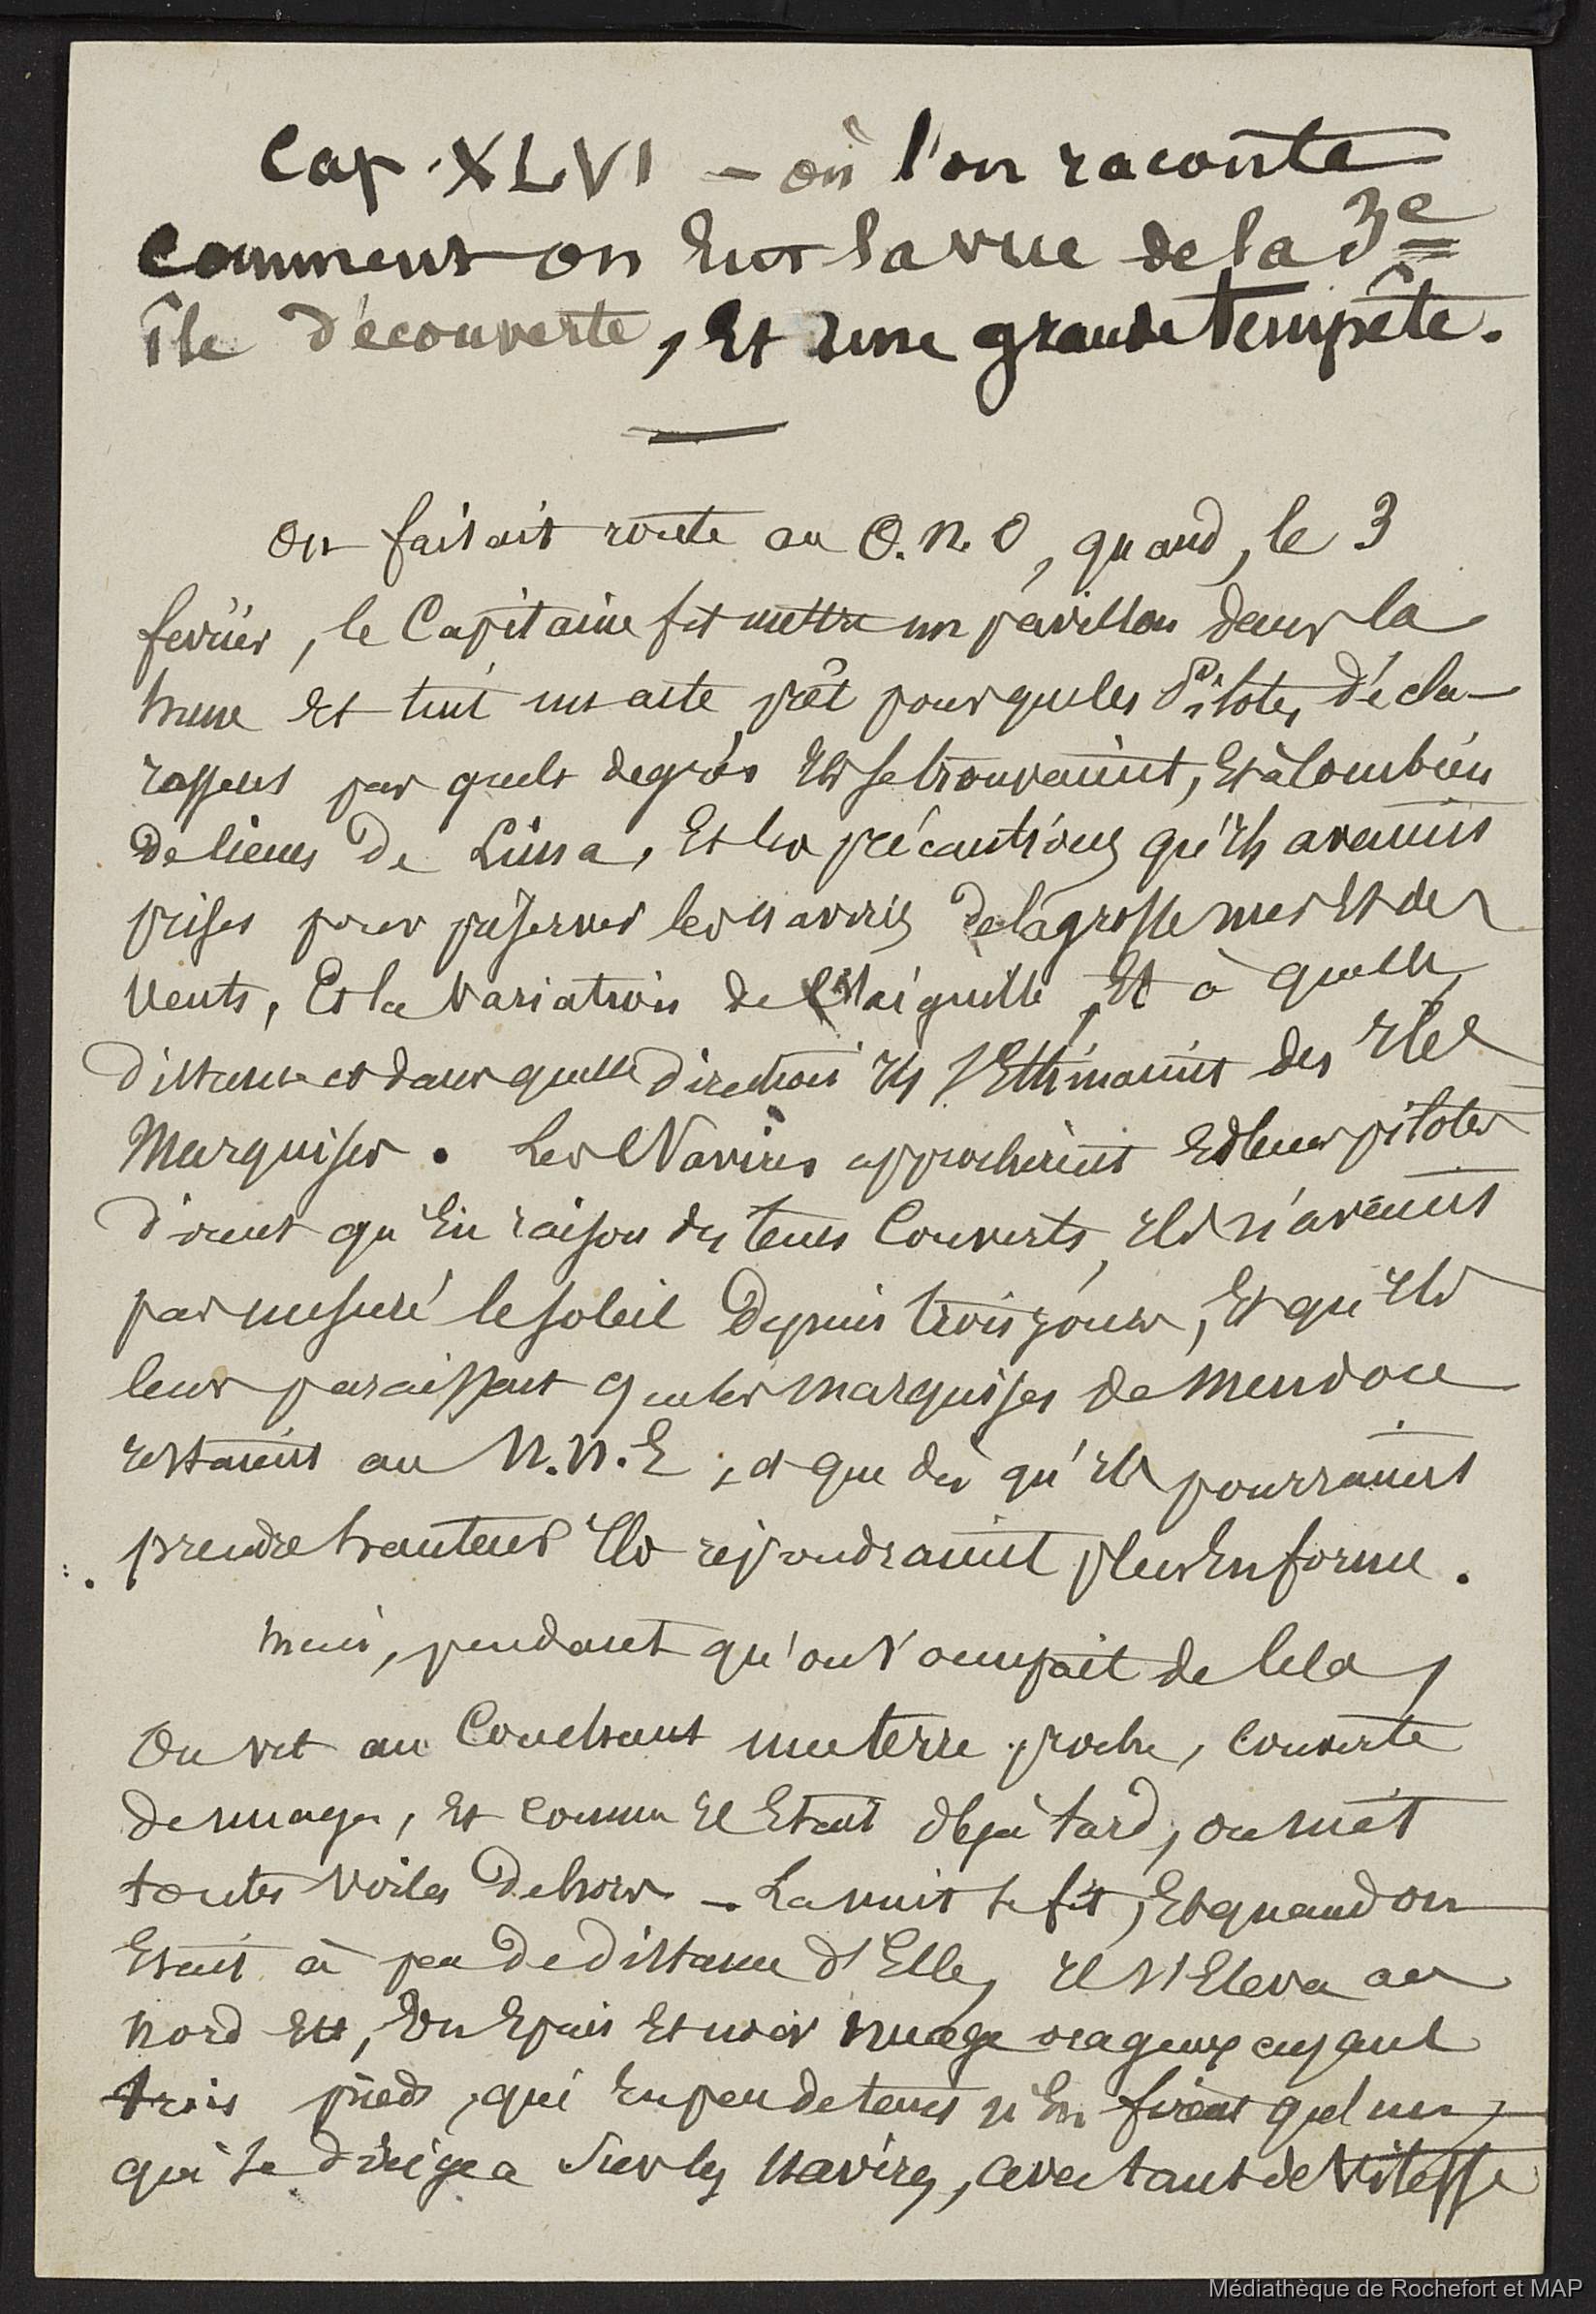 Cap. XLVI – où l'on raconte
comment on eut la vue de la 3e
île découverte, et une grande tempête.
On faisait route au O.N.O, quand, le 3
février, le Capitaine fit mettre un pavillon dans la
hune et tint un acte prêt pour que les Pilotes décla-
rassent par quels degrés ils se trouvaient, et à combien
de lieues de Lima, et les précautions qu'ils avaient
prises pour préserver les navires de la grosse mer et des
vents, et la variation de l'aiguille, et à quelle
distance et dans quelle direction ils s'estimaient des iles
Marquises. Les Navires approchèrent et leurs pilotes
dirent qu'en raison des tems couverts, ils n'avaient
pas mesuré le soleil depuis trois jours, et qu'ils
leur paraissait que les marquises de Mendoce
restaient au N.N.E, et que dès qu'ils pourraient
prendre hauteur ils répondraient plus en forme.
Mais, pendant qu'on s'occupait de cela,
on vit au Couchant une terre proche, couverte
de nuages, et comme il était déjà tard, on mit
toutes voiles dehors – La nuit se fit, et quand on
était à peu de distance d'Elle, il s'éleva au
nord est, un épais et noir nuage orageux ayant
trois pieds, qui en peu de tems n'en firent qu'un,
qui se dirigea sur les navires, avec tant de vitesse
Médiathèque de Rochefort et MAP